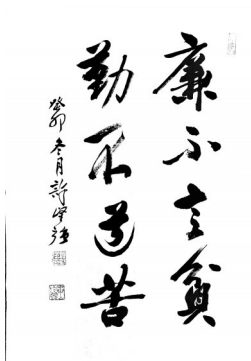 廉不言貧
勤不道苦
癸卯冬月許學強